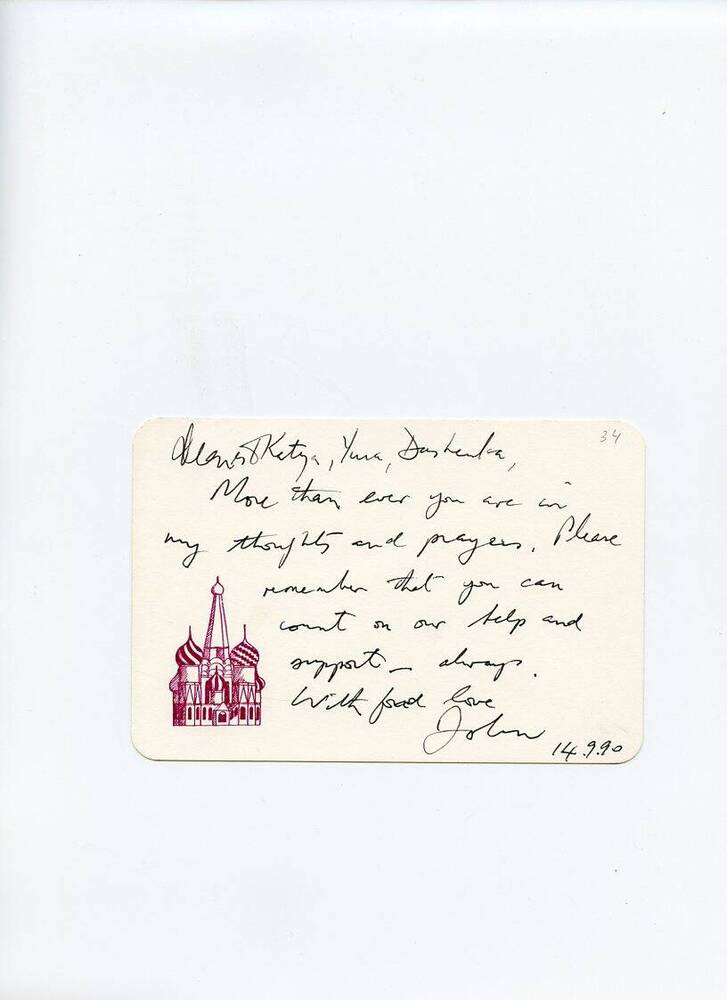 34
Dearest Katya, Yura, Dashenka,
More than ever you are in
my thoughts and prayers. Please
remember that you can
count on our help and
support – always.
With fond love
John
14.9.90